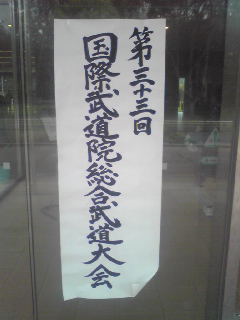 第三十三回
国際武道院総合武道大会